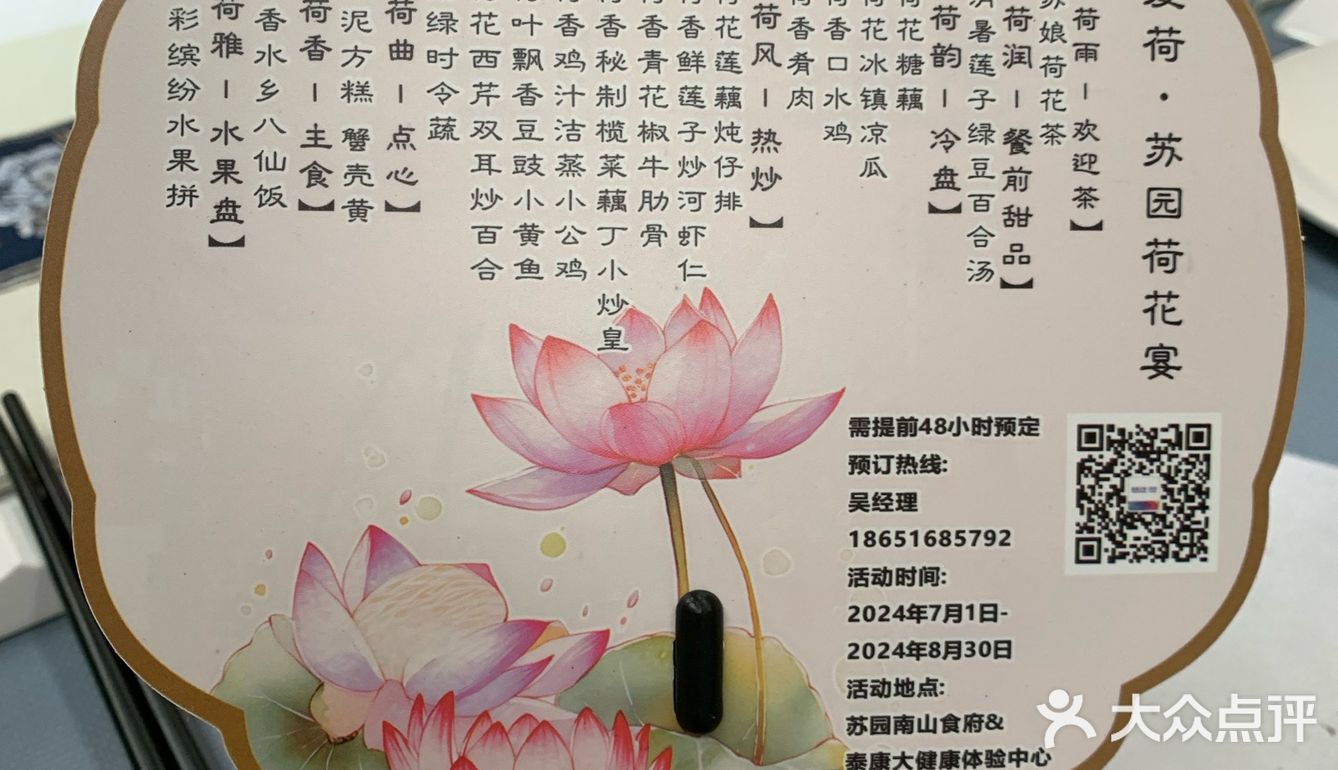 荷·苏园荷花宴
荷雨－欢迎茶】
娘荷花茶
荷润－餐前甜品】
暑莲子绿豆百合汤
荷韵－冷盘】
花糖藕
花冰镇凉瓜
香口水鸡
香肴肉
荷风－热炒】
花莲藕炖仔排
香鲜莲子炒河虾仁
香青花椒牛肋骨
香秘制榄菜藕丁小炒皇
香鸡汁洁蒸小公鸡
叶飘香豆豉小黄鱼
花西芹双耳炒百合
绿时令蔬
荷曲－点心】
泥方糕 蟹壳黄
荷香－主食】
香水乡八仙饭
荷雅－水果盘】
彩缤纷水果拼
需提前48小时预定
预订热线:
吴经理
18651685792
活动时间:
2024年7月1日-
2024年8月30日
活动地点:
苏园南山食府&
泰康大健康体验中心
大众点评